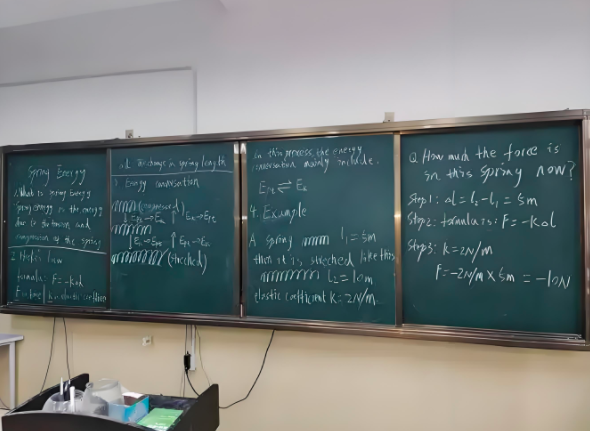 Spring Energy
1. What is spring energy
Spring energy is the energy
due to the tension and
compression of the spring
2. Hook's law
formula: F=-kΔL
F=force k=elastic coefficient
ΔL The change in spring length
3. Energy conversation
(compressed)
↓ Epe→Ek ↑ Ek→Epe
↓ Ek→Epe ↑ Epe→Ek
(streched)
in this process, the energy
mainly include.
Epe⇌Ek
4. Example
A spring l₁=5m
then it is streched like this
l₂=10m
elastic coefficient k=2N/m
Q. How much the force is
in this spring now?
Step1: ΔL=l₂-l₁=5m
Step2: formula is: F=-kΔL
Step3: k=2N/m
F=-2N/m×5m=-10N